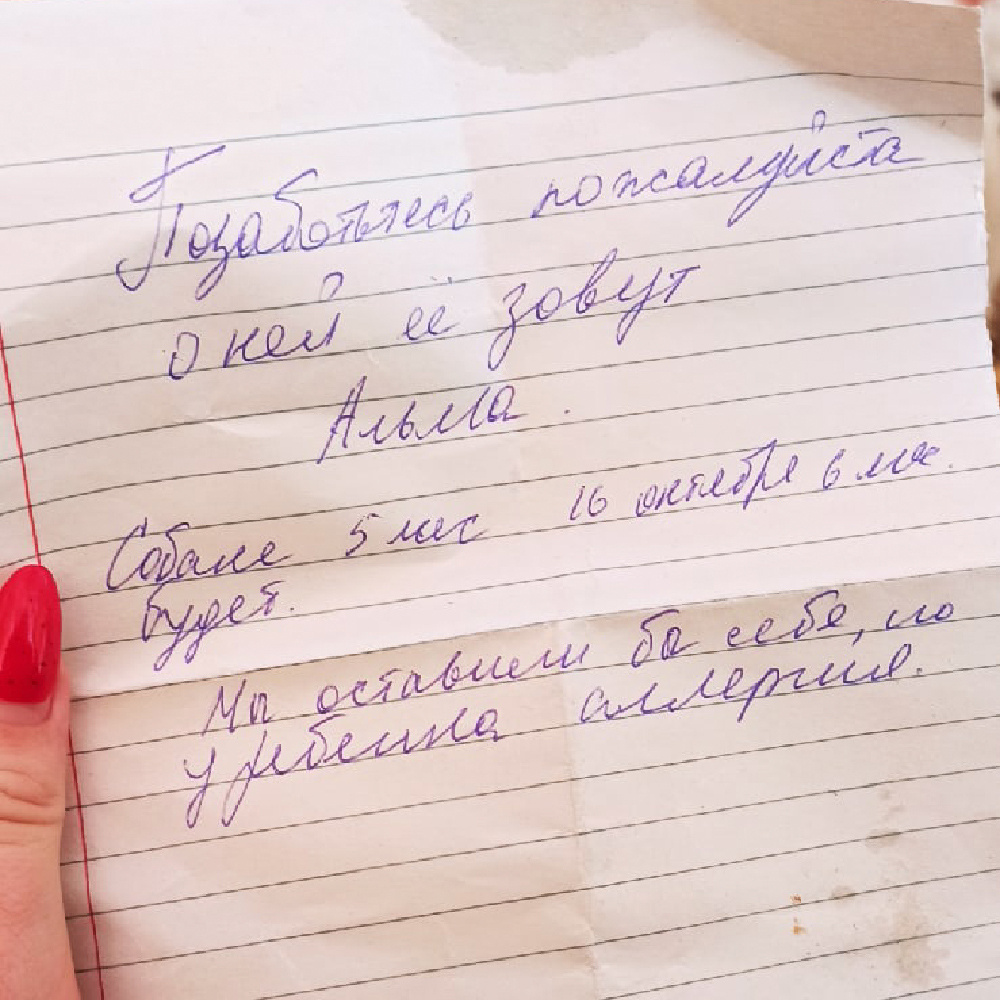 Позаботьтесь пожалуйста
о ней её зовут
Альма.
Собаке 5 мес 16 октября 6 мес.
будет.
Мы оставили бы себе, но
у ребенка аллергия.